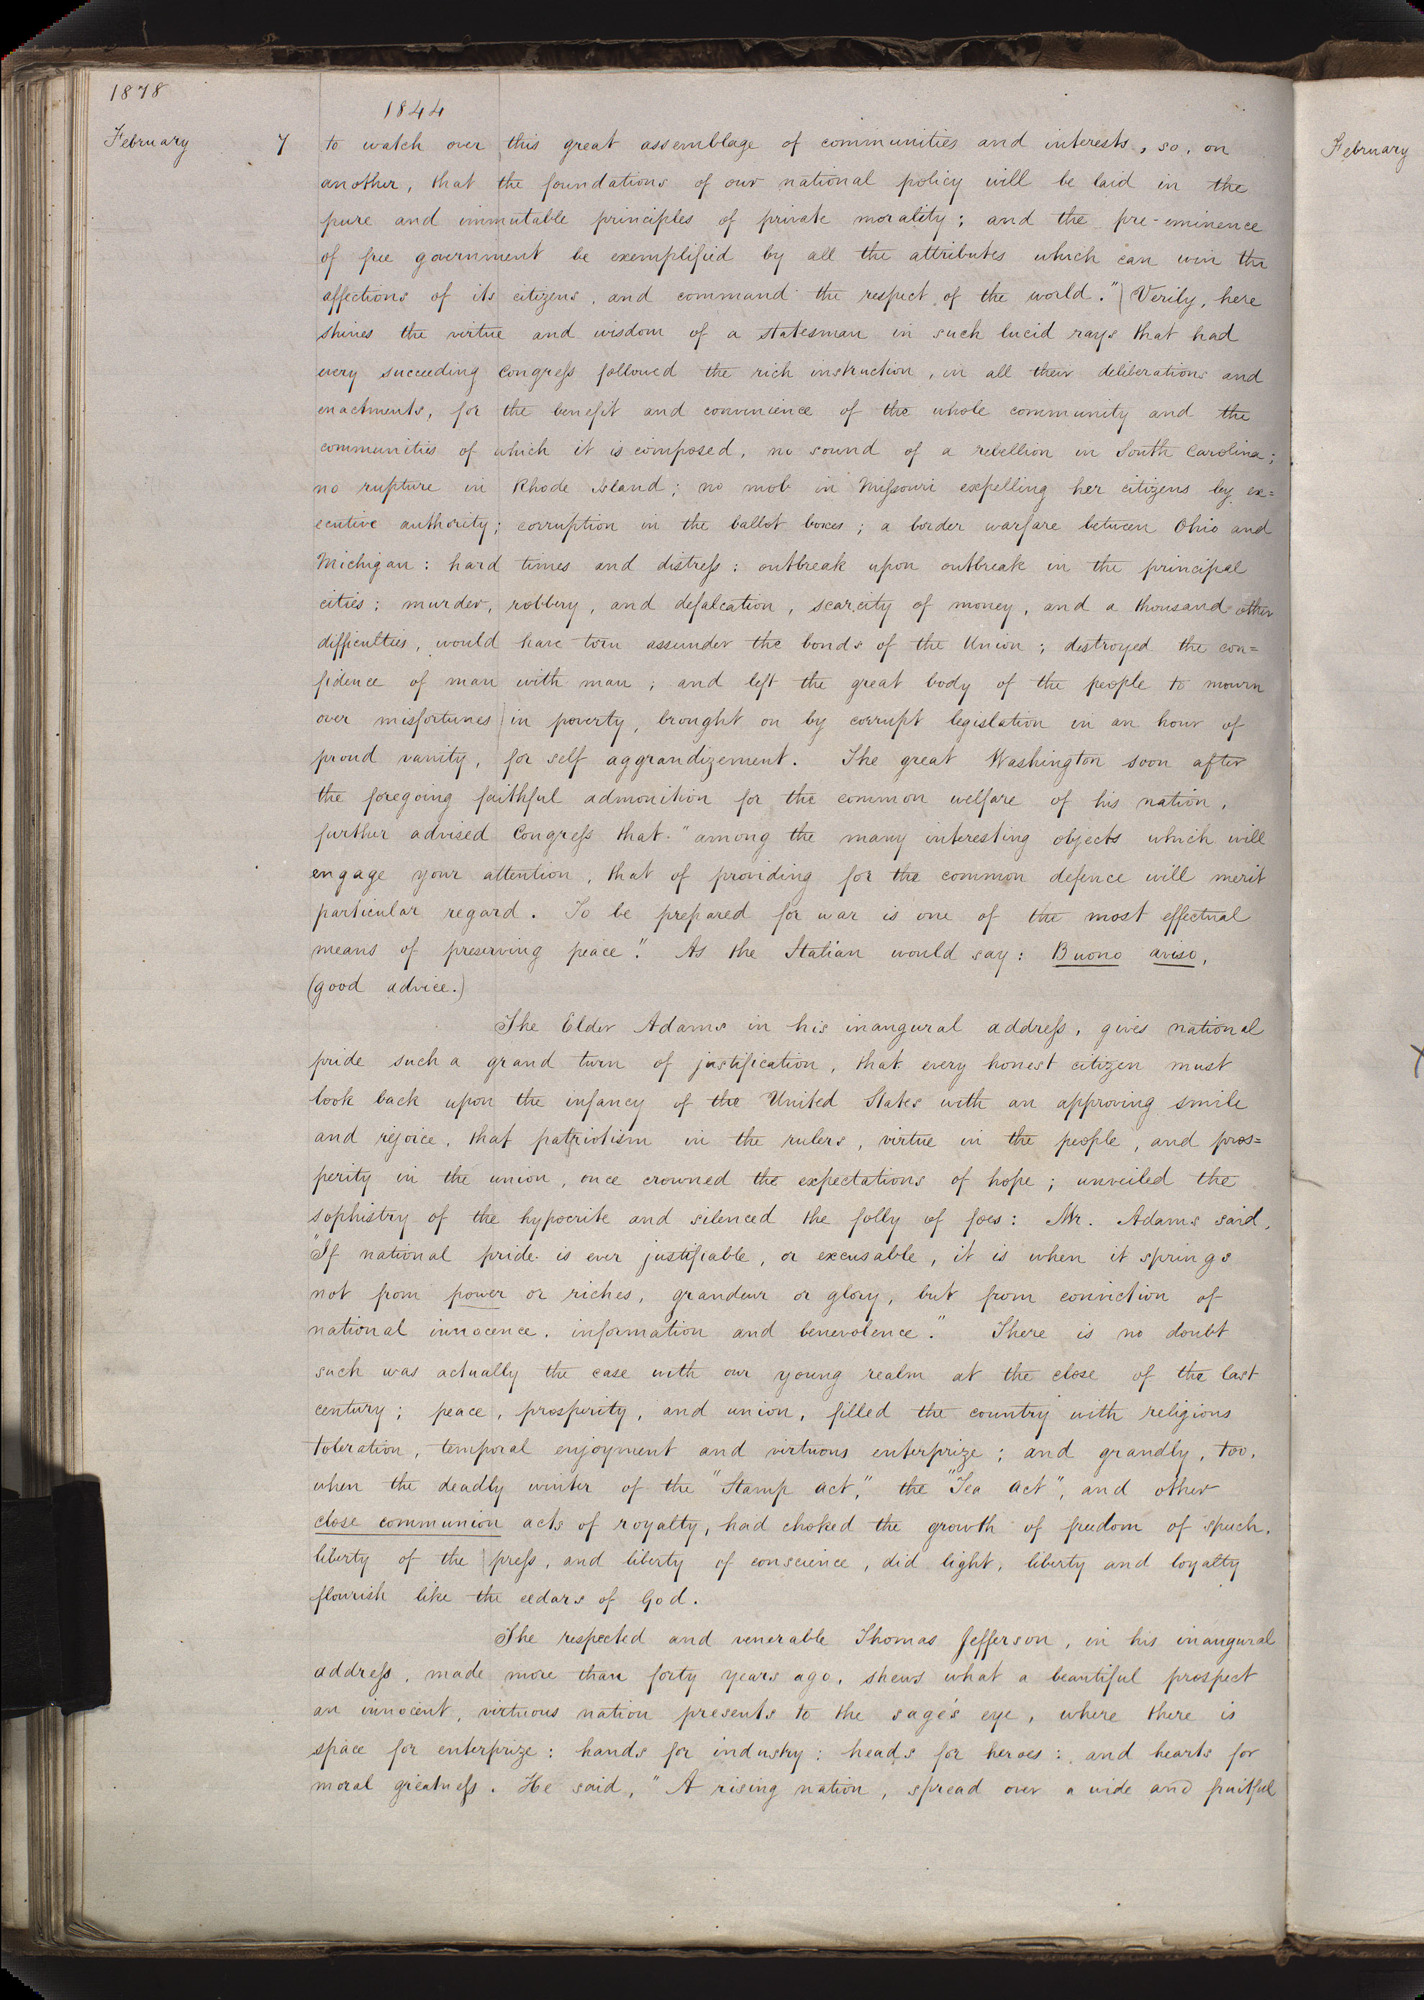 1878
1844
February 7 to watch over this great assemblage of communities and interests, so, on
another, that the foundations of our national policy will be laid in the
pure and immutable principles of private morality; and the pre-eminence
of free government be exemplified by all the attributes which can win the
affections of its citizens, and command the respect of the world." Verily, here
shines the virtue and wisdom of a statesman in such lucid rays that had
every succeeding Congress followed the rich instruction, in all their deliberations and
enactments, for the benefit and convenience of the whole community and the
communities of which it is composed, no sound of a rebellion in South Carolina;
no rupture in Rhode Island; no mob in Missouri expelling her citizens by ex=
ecutive authority; corruption in the ballot boxes; a border warfare between Ohio and
Michigan: hard times and distress: outbreak upon outbreak in the principal
cities: murder, robbery, and defalcation, scarcity of money, and a thousand other
difficulties, would have torn assunder the bonds of the Union; destroyed the con=
fidence of man with man; and left the great body of the people to mourn
over misfortunes in poverty, brought on by corrupt legislation in an hour of
proud vanity, for self aggrandizement. The great Washington soon after
the foregoing faithful admonition for the common welfare of his nation,
further advised Congress that "among the many interesting objects which will
engage your attention, that of providing for the common defence will merit
particular regard. To be prepared for war is one of the most effectual
means of preserving peace." As the Italian would say: Buono aviso,
(good advice.)
The Elder Adams in his inaugural address, gives national
pride such a grand turn of justification, that every honest citizen must
look back upon the infancy of the United States with an approving smile
and rejoice, that patriotism in the rulers, virtue in the people, and pros=
perity in the union, once crowned the expectations of hope; unveiled the
sophistry of the hypocrite and silenced the folly of foes: Mr. Adams said,
"If national pride is ever justifiable, or excusable, it is when it springs
not from power or riches, grandeur or glory, but from conviction of
national innocence, information and benevolence." There is no doubt
such was actually the case with our young realm at the close of the last
century; peace, prosperity, and union, filled the country with religious
toleration, temporal enjoyment and virtuous enterprize; and grandly, too,
when the deadly winter of the "Stamp act," the "Tea act", and other
close communion acts of royalty, had choked the growth of freedom of speech,
liberty of the press, and liberty of conscience, did light, liberty and loyalty
flourish like the cedars of God.
The respected and venerable Thomas Jefferson, in his inaugural
address, made more than forty years ago, shews what a beautiful prospect
an innocent, virtuous nation presents to the sage's eye, where there is
space for enterprize: hands for industry: heads for heroes: and hearts for
moral greatness. He said, "A rising nation, spread over a wide and fruitful
February